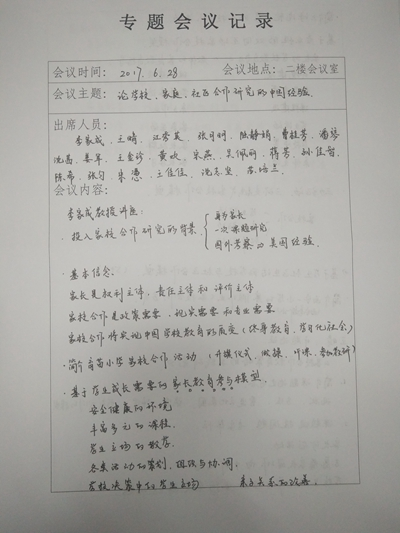 专题会议记录
会议时间： 2017. 6. 28 会议地点：二楼会议室
会议主题： 论学校、家庭、社区合作研究的中国经验.
出席人员：
李家成、王晴、 张月明、陈静娟、曹枝芳、潘琴
沈磊、姜军、王金珍、黄欢、宋燕、吴佩丽、蒋芳、孙佳智、
陈希、张匀、朱 、王佳佳、沈志堂、
会议内容：
李家成教授讲座：
· 投入家校合作研究的背景 { 身为家长
一次课题研究
国外考察 美国经验.
· 基本信念.
家长是权利主体、责任主体和评价主体
家校合作是政策需要、现实需要和专业需要
家校合作将实现中国学校教育的质变（终身教育、学习化社会）
· 简介 苗小学家校合作活动（开旗仪式、做操、听课、参加教研）
· 基于学生成长需要的家长教育参与模型.
安全健康的环境
丰富多元的课程.
学生立场的教学.
各类活动的策划、组织与协调.
学校决策中的学生立场 亲子关系的改善.